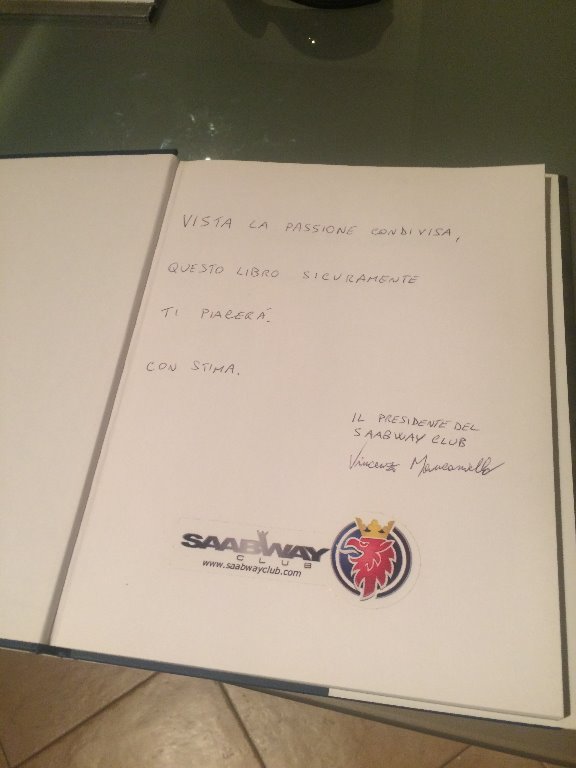 VISTA LA PASSIONE CONDIVISA,
QUESTO LIBRO SICURAMENTE
TI PIACERÁ.
CON STIMA.
IL PRESIDENTE DEL
SAABWAY CLUB
SAABWAY
CLUB
www.saabwayclub.com